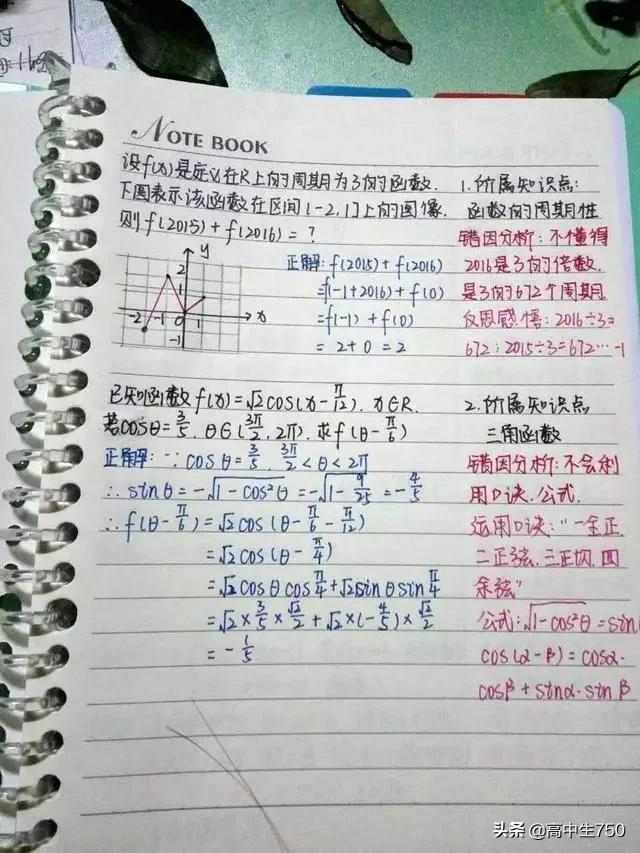 NOTE BOOK
设f(x)是定义在R上的周期为3的函数.
下图表示该函数在区间[-2,1]上的图像.
则f(2015)+f(2016)=?
y
2
1
-2 -1 0 1 x
-1
正解:f(2015)+f(2016)
=f(-1+2016)+f(0)
=f(-1)+f(0)
=2+0=2
1.所属知识点:
函数的周期性
错因分析:不懂得
2016是3的倍数.
是3的672个周期.
反思感悟:2016÷3=
672;2015÷3=672…-1
已知函数f(x)=√2cos(x-π/12).x∈R.
若cosθ=3/5.θ∈(3π/2,2π).求f(θ-π/6)
正解:∵cosθ=3/5.3π/2<θ<2π
∴sinθ=-√(1-cos²θ)=-√(1-9/25)=-4/5
∴f(θ-π/6)=√2cos(θ-π/6-π/12)
=√2cos(θ-π/4)
=√2cosθcosπ/4+√2sinθsinπ/4
=√2×3/5×√2/2+√2×(-4/5)×√2/2
=-1/5
2.所属知识点
三角函数
错因分析:不会利
用口诀.公式.
运用口诀:"一全正.
二正弦.三正切.四
余弦"
公式:√(1-cos²θ)=sin
cos(α-β)=cosα·
cosβ+sinα·sinβ
头条 @高中生750